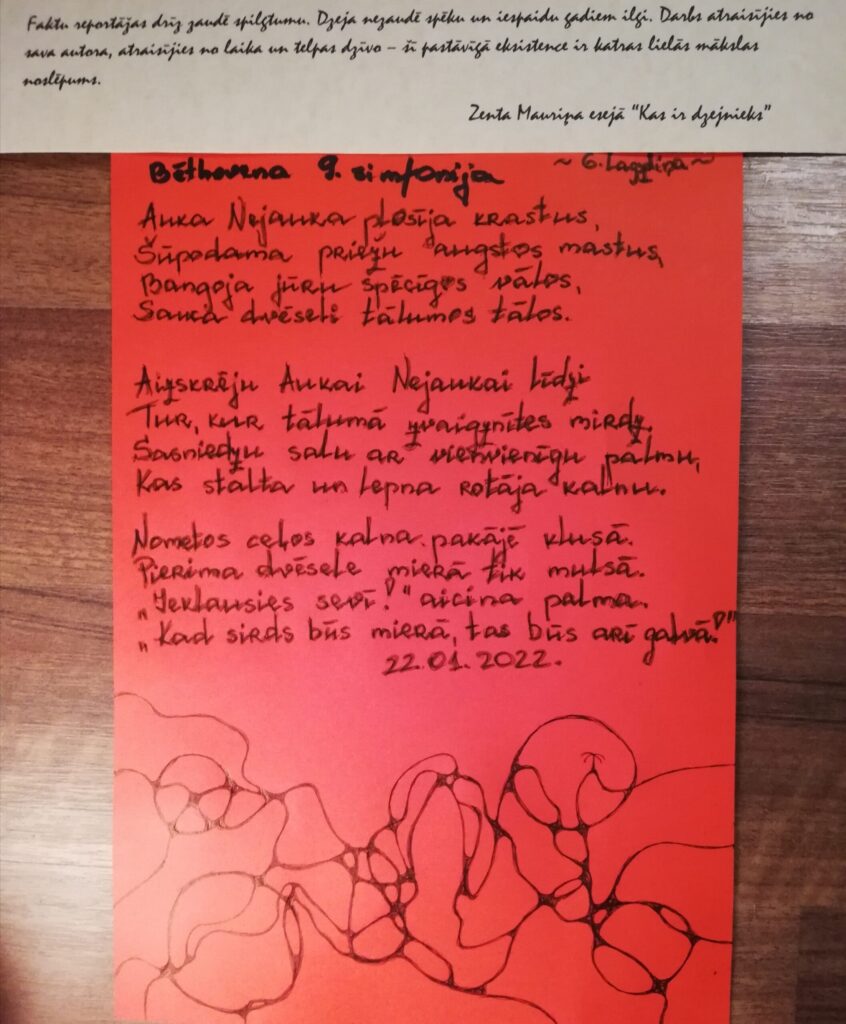 Faktu reportājas drīz zaudē spilgtumu. Dzeja nezaudē spēku un iespaidu gadiem ilgi. Darbs atraisījies no
sava autora, atraisījies no laika un telpas dzīvo – šī pastāvīgā eksistence ir katras lielās mākslas
noslēpums.
Zenta Mauriņa esejā "Kas ir dzejnieks"
Bēthovena 9. simfonija
~ 6. Lappuse ~
Auka Nejauka plosīja krastus,
Šūpodama priežu augstos mastus,
Bangoja jūru spēcīgos vālos,
Sauca dvēseli tālumos tālos.
Aizskrēju Aukai Nejaukai līdzi
Tur, kur tālumā zvaigznītes mirdz.
Sasniedzu salu ar vientulīgu palmu,
Kas stalta un lepna rotāja kalnu.
Nometos ceļos kalna pakājē klusā.
Pierima dvēsele mierā tik mulsā.
„Ieklausies sevī!" aicina palma.
„Kad sirds būs mierā, tas būs arī galvā!"
22.01.2022.